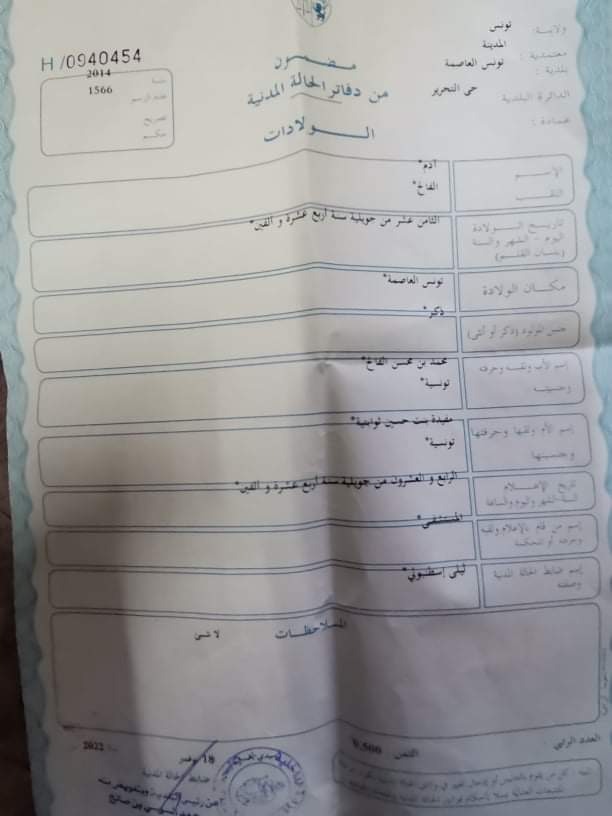 ولاية: تونس
معتمدية: المدينة
بلدية: تونس العاصمة
الدائرة البلدية حي التحرير
عمادة:
مضمون
من دفاتر الحالة المدنية
الولادات
H/0940454
سنة 2014
عدد الرسم 1566
تصريح
حكم
الإسم آدم*
اللقب الفالح*
تاريخ الولادة
اليوم - الشهر والسنة
(بلسان القلم)
الثامن عشر من جويلية سنة أربع عشرة و ألفين*
مكان الولادة تونس العاصمة*
جنس المولود (ذكر أو أنثى) ذكر*
إسم الأب ولقبه وحرفته محمد بن محسن الفالح*
وجنسيته تونسية*
إسم الأم ولقبها وحرفتها مفيدة بنت حسين
وجنسيتها تونسية*
تاريخ الإعلام
السنة والشهر واليوم والساعة
الرابع و العشرون من جويلية سنة أربع عشرة و ألفين*
إسم من قام بالإعلام ولقبه
وحرفته أو المحكمة
المستشفى*
إسم ضابط الحالة المدنية
وصفته
ليلى
الملاحظات
لا شئ
العدد الرتبي
الثمن 0,500
18 نوفمبر 2022
ضابط الحالة المدنية